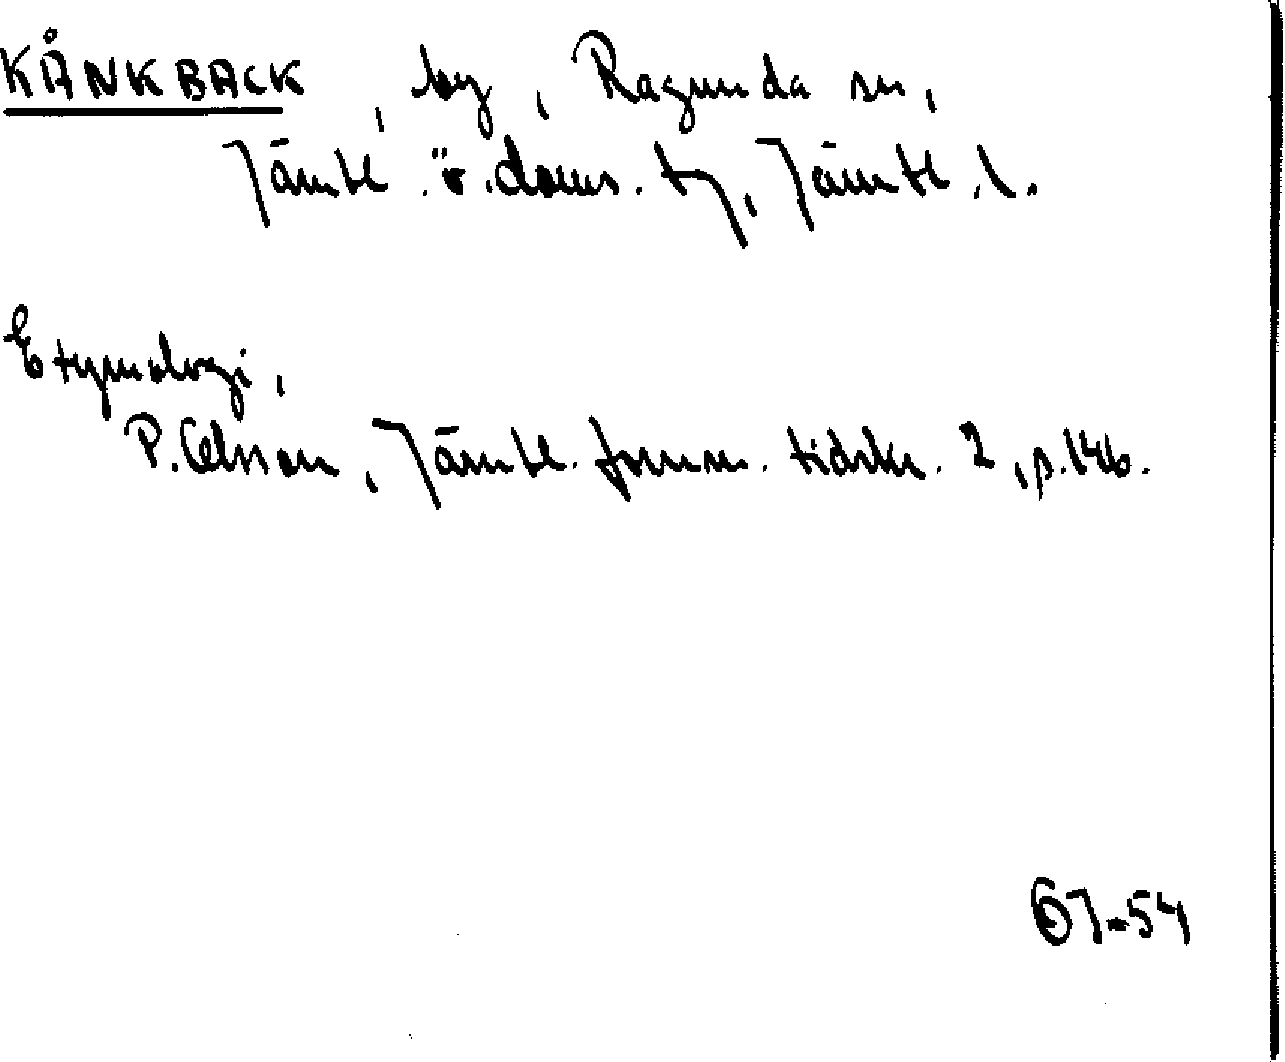 KÅNKBACK, by, Ragunda sn,
Jämtl. ö. doms. tg, Jämtl. l.
Etymologi,
P. Olsson, Jämtl. fornm. tidskr. 2, p. 146.
67-54